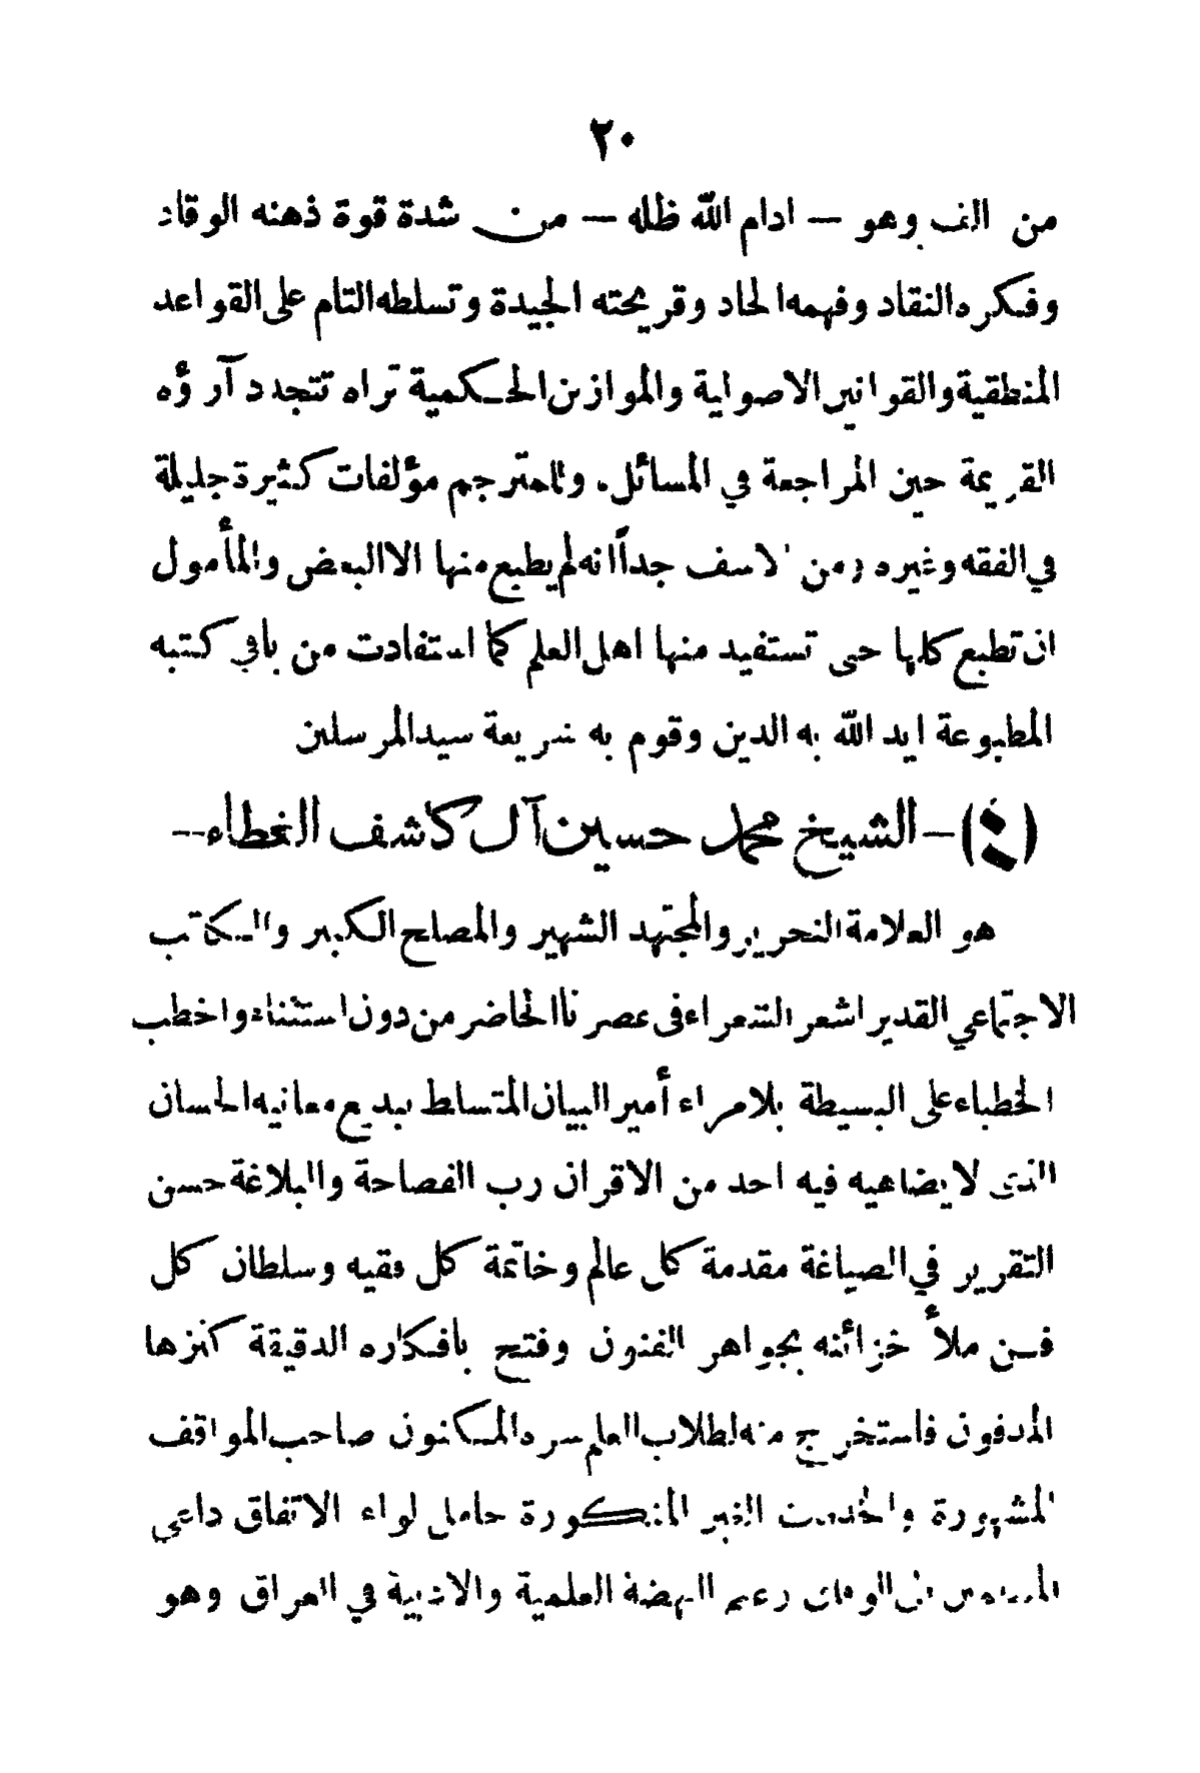 ٢٠
من الف وهو — ادام الله ظله — من شدة قوة ذهنه الوقاد
وفكره النقاد وفهمه الحاد وقريحته الجيدة وتسلطه التام على القواعد
المنطقية والقوانين الاصولية والموازين الحكمية تراه تتجدد آرؤه
القريمة حين المراجعة في المسائل. وللمترجم مؤلفات كثيرة جليلة
في الفقه وغيره ومن الاسف جداً انه لم يطبع منها الا البعض والمأمول
ان تطبع كلها حتى تستفيد منها اهل العلم كما استفادت من باقي كتبه
المطبوعة ايد الله به الدين وقوم به شريعة سيد المرسلين
(٤) — الشيخ محمد حسين آل كاشف الغطاء —
هو العلامة النحرير والمجتهد الشهير والمصلح الكبير والكاتب
الاجتماعي القدير اشعر الشعراء فى عصرنا الحاضر من دون استثناء واخطب
الخطباء على البسيطة بلا مراء أمير البيان المتسلط ببديع معانيه الحسان
الذى لا يضاهيه فيه احد من الاقران رب الفصاحة والبلاغة حسن
التقرير في الصياغة مقدمة كل عالم وخاتمة كل فقيه وسلطان كل
فن ملأ خزائنه بجواهر الفنون وفتح بافكاره الدقيقة كنزها
المدفون فاستخرج منه لطلاب العلم سره المكنون صاحب المواقف
المشهورة والخدمت الغير المنكورة حامل لواء الاتفاق داعي
المسلمين الى الوفاق زعيم النهضة العلمية والادبية في العراق وهو